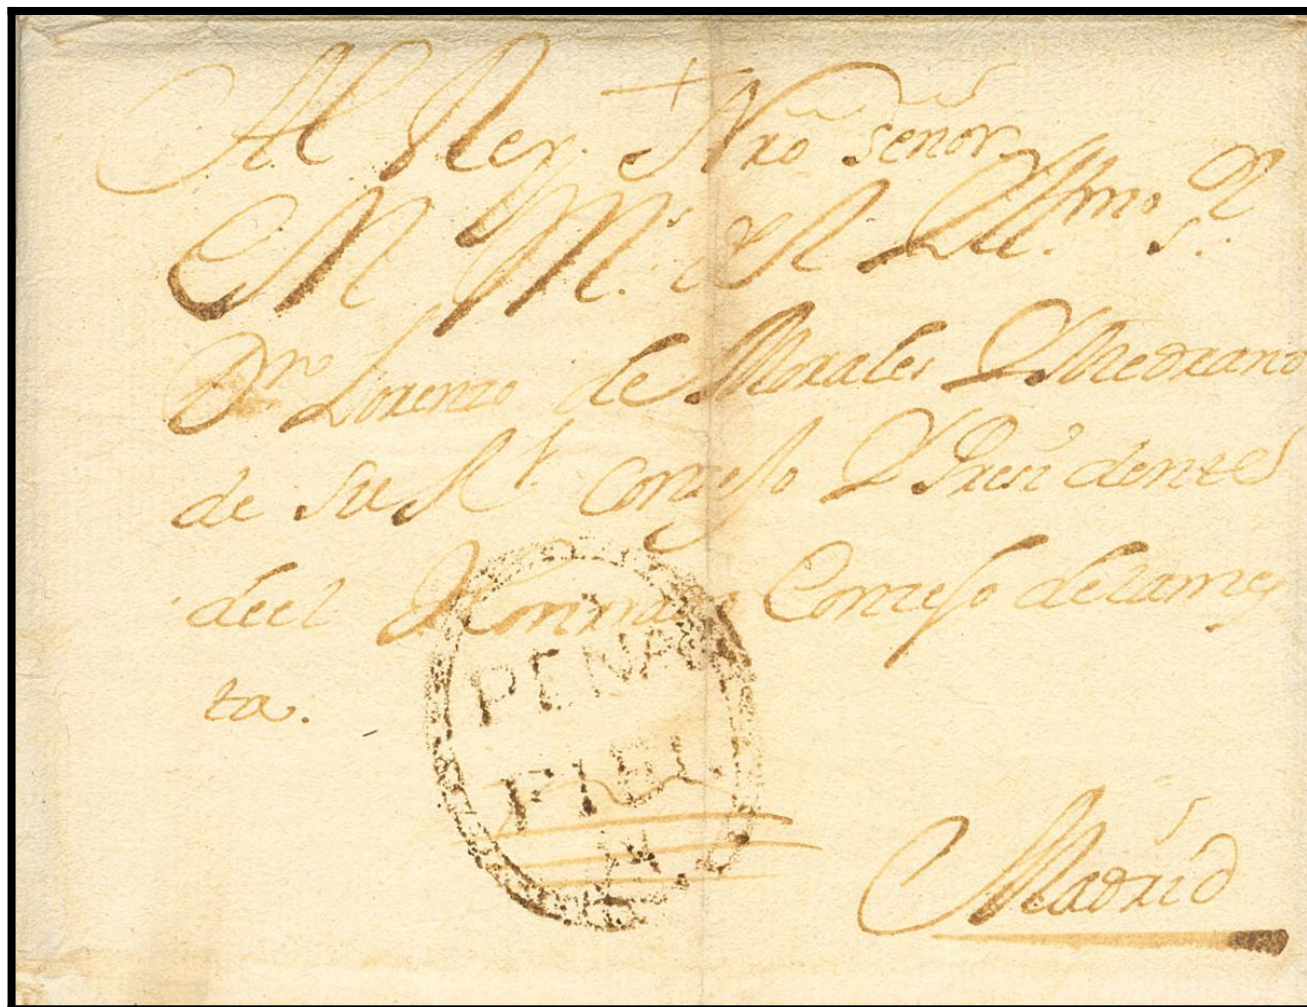 Al Rey Nrō Señor
M M.s a R Ill.mo S.r
Dn Lorenzo de Morales Y Medrano
de Su R.l Consejo Y Presidente
deel Honrrado Conzejo delames
ta.
PEÑA
FIEL
Madrid